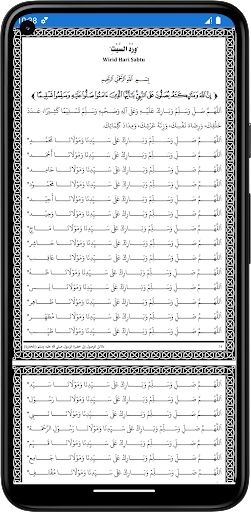 وِرْدُ السَّبْتِ
Wirid Hari Sabtu
بِسْمِ اللَّهِ الرَّحْمَٰنِ الرَّحِيمِ
﴿إِنَّ اللَّهَ وَمَلَائِكَتَهُ يُصَلُّونَ عَلَى النَّبِيِّ يَا أَيُّهَا الَّذِينَ آمَنُوا صَلُّوا عَلَيْهِ وَسَلِّمُوا تَسْلِيمًا﴾
اَللّٰهُمَّ صَلِّ وَسَلِّمْ وَبَارِكْ عَلَيْهِ وَعَلَى آلِهِ وَصَحْبِهِ وَسَلِّمْ تَسْلِيمًا كَثِيرًا عَدَدَ
خَلْقِكَ، وَرِضَاءَ نَفْسِكَ، وَزِنَةَ عَرْشِكَ، وَمِدَادَ كَلِمَاتِكَ
اَللّٰهُمَّ صَلِّ وَسَلِّمْ وَبَارِكْ عَلَى سَيِّدِنَا وَمَوْلَانَا مُحَمَّدٍ
اَللّٰهُمَّ صَلِّ وَسَلِّمْ وَبَارِكْ عَلَى سَيِّدِنَا وَمَوْلَانَا أَحْمَدَ
اَللّٰهُمَّ صَلِّ وَسَلِّمْ وَبَارِكْ عَلَى سَيِّدِنَا وَمَوْلَانَا حَامِدٍ
اَللّٰهُمَّ صَلِّ وَسَلِّمْ وَبَارِكْ عَلَى سَيِّدِنَا وَمَوْلَانَا مَحْمُودٍ
اَللّٰهُمَّ صَلِّ وَسَلِّمْ وَبَارِكْ عَلَى سَيِّدِنَا وَمَوْلَانَا أَحِيدَ
اَللّٰهُمَّ صَلِّ وَسَلِّمْ وَبَارِكْ عَلَى سَيِّدِنَا وَمَوْلَانَا وَحِيدٍ
اَللّٰهُمَّ صَلِّ وَسَلِّمْ وَبَارِكْ عَلَى سَيِّدِنَا وَمَوْلَانَا مَاحٍ
اَللّٰهُمَّ صَلِّ وَسَلِّمْ وَبَارِكْ عَلَى سَيِّدِنَا وَمَوْلَانَا حَاشِرٍ
اَللّٰهُمَّ صَلِّ وَسَلِّمْ وَبَارِكْ عَلَى سَيِّدِنَا وَمَوْلَانَا عَاقِبٍ
اَللّٰهُمَّ صَلِّ وَسَلِّمْ وَبَارِكْ عَلَى سَيِّدِنَا وَمَوْلَانَا
اَللّٰهُمَّ صَلِّ وَسَلِّمْ وَبَارِكْ عَلَى سَيِّدِنَا وَمَوْلَانَا
اَللّٰهُمَّ صَلِّ وَسَلِّمْ وَبَارِكْ عَلَى سَيِّدِنَا وَمَوْلَانَا طَاهِرٍ
اَللّٰهُمَّ صَلِّ وَسَلِّمْ وَبَارِكْ عَلَى سَيِّدِنَا وَمَوْلَانَا مُطَهَّرٍ
اَللّٰهُمَّ صَلِّ وَسَلِّمْ وَبَارِكْ عَلَى سَيِّدِنَا وَمَوْلَانَا طَيِّبٍ
اَللّٰهُمَّ صَلِّ وَسَلِّمْ وَبَارِكْ عَلَى سَيِّدِنَا وَمَوْلَانَا سَيِّدٍ
اَللّٰهُمَّ صَلِّ وَسَلِّمْ وَبَارِكْ عَلَى سَيِّدِنَا وَمَوْلَانَا نَبِيٍّ
اَللّٰهُمَّ صَلِّ وَسَلِّمْ وَبَارِكْ عَلَى سَيِّدِنَا وَمَوْلَانَا رَسُولِ الرَّحْمَةِ
اَللّٰهُمَّ صَلِّ وَسَلِّمْ وَبَارِكْ عَلَى سَيِّدِنَا وَمَوْلَانَا
اَللّٰهُمَّ صَلِّ وَسَلِّمْ وَبَارِكْ عَلَى سَيِّدِنَا وَمَوْلَانَا جَامِعٍ
اَللّٰهُمَّ صَلِّ وَسَلِّمْ وَبَارِكْ عَلَى سَيِّدِنَا وَمَوْلَانَا